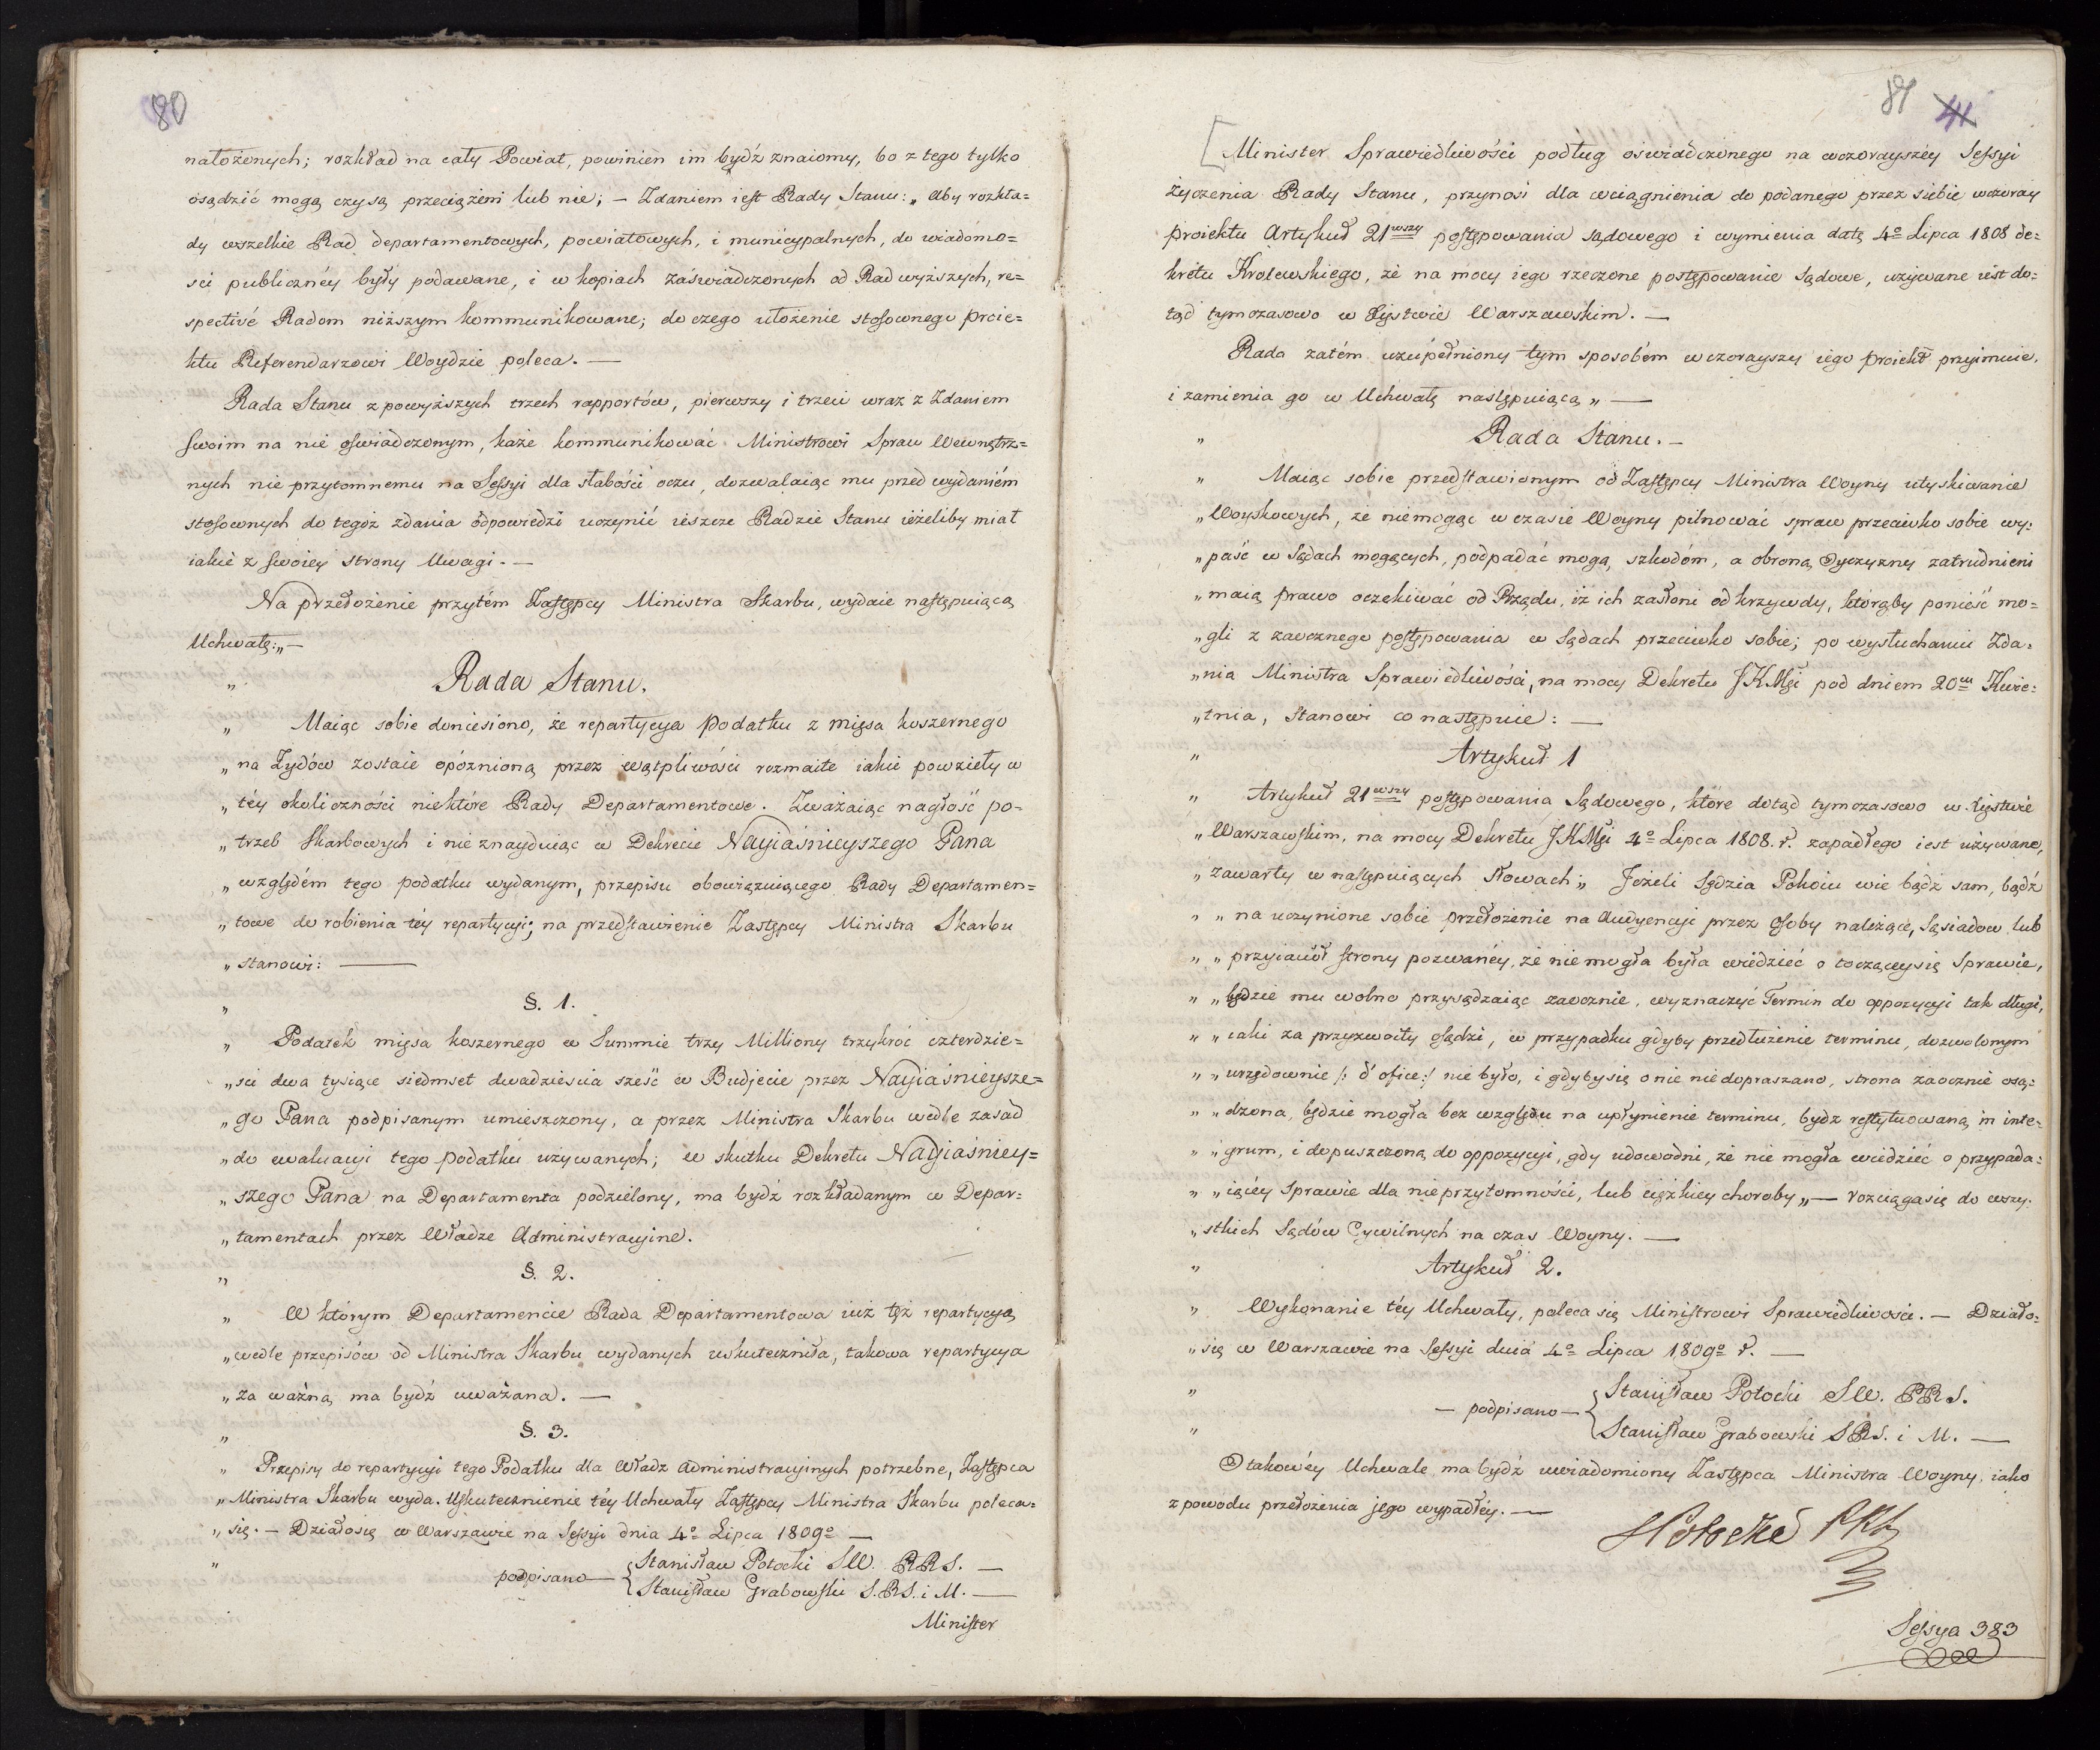 80
nałożonych; rozkład na cały Powiat, powinien im bydź znaiomy, bo z tego tylko
osądzić mogą czy są przeciążeni lub nie; — Zdaniem iest Rady Stanu: „ aby rozkła=
dy wszelkie Rad departamentowych, powiatowych, i municypalnych, do wiadomo=
sci publicznéy były podawane, i w kopiach zaświadczonych od Rad wyższych, re=
spectivé Radom niższym kommunikowane; do czego ułożenie stosownego proie=
ktu Referendarzowi Woydzie poleca. —
Rada Stanu z powyższych trzech rapportów, pierwszy i trzeci wraz z Zdaniem
swoim na nie oświadczonym, każe kommunikować Ministrowi Spraw Wewnętrz=
nych nie przytomnemu na Sessyi dla słabości oczu, dozwalaiąc mu przed wydaniém
stosownych do tegoż zdania odpowiedzi uczynić ieszcze Radzie Stanu ieżeliby miał
iakie z swoiey strony Uwagi. —
Na przełożenie przytém Zastępcy Ministra Skarbu, wydaie następuiącą
Uchwałę: „ —
„ Rada Stanu.
„ Maiąc sobie doniesiono, że repartycya podatku z mięsa koszernego
„ na Żydów zostaie opóznioną przez wątpliwości rozmaite iakie powzieły w
„ téy okoliczności niektóre Rady Departamentowe. Zważaiąc nagłość po-
„ trzeb Skarbowych i nie znayduiąc w Dekrecie Nayiaśnieyszego Pana
„ względém tego podatku wydanym, przepisu obowiązuiącego Rady Departamen=
„ towe do robienia téy repartycyi; na przedstawienie Zastępcy Ministra Skarbu
„ stanowi: —
„ §. 1.
„ Podatek mięsa koszernego w Summie trzy Milliony trzykroć czterdzie=
„ sci dwa tysiące siedmset dwadziescia sześć w Budjecie przez Nayiaśnieysze=
„ go Pana podpisanym umieszczony, a przez Ministra Skarbu wedle zasad
„ do ewaluacyi tego podatku uzywanych; w skutku Dekretu Nayiaśniey=
„ szego Pana na Departamenta podzielony, ma bydź rozkładanym w Depar=
„ tamentach przez Władze Administracyine.
„ §. 2.
„ W którym Departamencie Rada Departamentowa iuż tęż repartycyą
„ wedle przepisów od Ministra Skarbu wydanych uskuteczniła, takowa repartycya
„ za ważną ma bydź uważana. —
„ §. 3.
„ Przepisy do repartycyi tego Podatku dla Władz administracyinych potrzebne, Zastępca
„ Ministra Skarbu wyda. Uskutecznienie téy Uchwały Zastępcy Ministra Skarbu poleca=
„ się. — Działosię w Warszawie na Sessyi dnia 4º Lipca 1809º —
„ podpisano — { Stanisław Potocki SW. PRS. —
Stanisław Grabowski S.RS. i M. —
Minister
81 41
[ Minister Sprawiedliwości podług oświadczonego na wczorayszéy Sessyi
życzenia Rady Stanu, przynosi dla wciągnienia do podanego przez siebie wczoray
proiektu Artykuł 21wszy postępowania sądowego i wymienia datę 4º Lipca 1808 de=
kretu Krolewskiego, że na mocy iego rzeczone postępowanie Sądowe, używane iest do=
tąd tymczasowo w Xięstwie Warszawskim. —
Rada zatém uzupełniony tym sposobém wczorayszy iego proiekt przyimuie,
i zamienia go w Uchwałę następuiącą „ —
„ Rada Stanu. —
„ Maiąc sobie przedstawionym od Zastępcy Ministra Woyny utyskiwanie
„ Woyskowych, że niemogąc w czasie Woyny pilnować spraw przeciwko sobie wy=
„ paść w Sądach mogących, podpadać mogą szkodóm, a obroną Oyczyzny zatrudnieni
„ maią prawo oczekiwać od Rządu, iż ich zasłoni od krzywdy, którąby ponieść mo=
„ gli z zaocznego postępowania w Sądach przeciwko sobie; po wysłuchaniu Zda=
„ nia Ministra Sprawiedliwości, na mocy Dekretu JKMści pod dniem 20m Kwie=
„ tnia, Stanowi co następuie: —
„ Artykuł 1
„ Artykuł 21wszy postępowania Sądowego, które dotąd tymczasowo w Xięstwie
„ Warszawskim, na mocy Dekretu JKMści 4º Lipca 1808. r. zapadłego iest używane,
„ zawarty w następuiących słowach „ Jeżeli Sędzia Pokoiu wie bądź sam, bądź
„ „ na uczynione sobie przełożenie na Audyencyi przez Osoby należące, Sąsiadow lub
„ „ przyiaciół strony pozwanéy, że nie mogła była wiedzieć o toczącey się Sprawie,
„ „ będzie mu wolno przysądzaiąc zaocznie, wyznaczyć Termin do oppozycyi tak długi,
„ „ iaki za przyzwoity osądzi, w przypadku gdyby przedłużenie terminu, dozwolonym
„ „ urzędownie /: d'ofice :/ nie było, i gdyby się o nie nie dopraszano, strona zaocznie osą=
„ „ dzona, będzie mogła bez względu na upłynienie terminu, bydz restytuowaną in inte=
„ „ grum, i dopuszczoną do oppozycyi, gdy udowodni, że nie mogła wiedzieć o przypada=
„ „ iącéy Sprawie dla nieprzytomności, lub ciężkiey choroby „ — rozciąga się do wszy=
„ stkich Sądów Cywilnych na czas Woyny. —
„ Artykuł 2.
„ Wykonanie téy Uchwały, poleca się Ministrowi Sprawiedliwości. — Działo=
„ się w Warszawie na Sessyi dnia 4º Lipca 1809º r. —
„ — podpisano — { Stanisław Potocki SW. PRS.
„ Stanisław Grabowski SRS. i M. —
O takowéy Uchwale ma bydź uwiadomiony Zastępca Ministra Woyny, iako
z powodu przełożenia jego wypadłéy. —
Potocki
Sessya 383